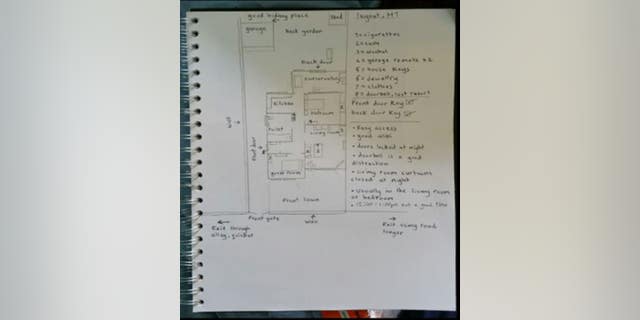 good hiding place
Shed
garage
Back garden
Back door
conservatory
kitchen
bedroom
toilet
living room
front room
Front lawn
Wall
Front gate
Wall
Exit through
alley, quickest
Exit using road
longer
1=cigarettes
2=cash
3=alcohol
4=garage remote x2
5=house keys
6=jewellry
7=clothes
8=doorbell, last resort
Front door key
back door key
• Easy access
• good alibi
• doors locked at night
• doorbell is a good
distraction
• living room curtains
closed at night
• usually in the living room
or bedroom